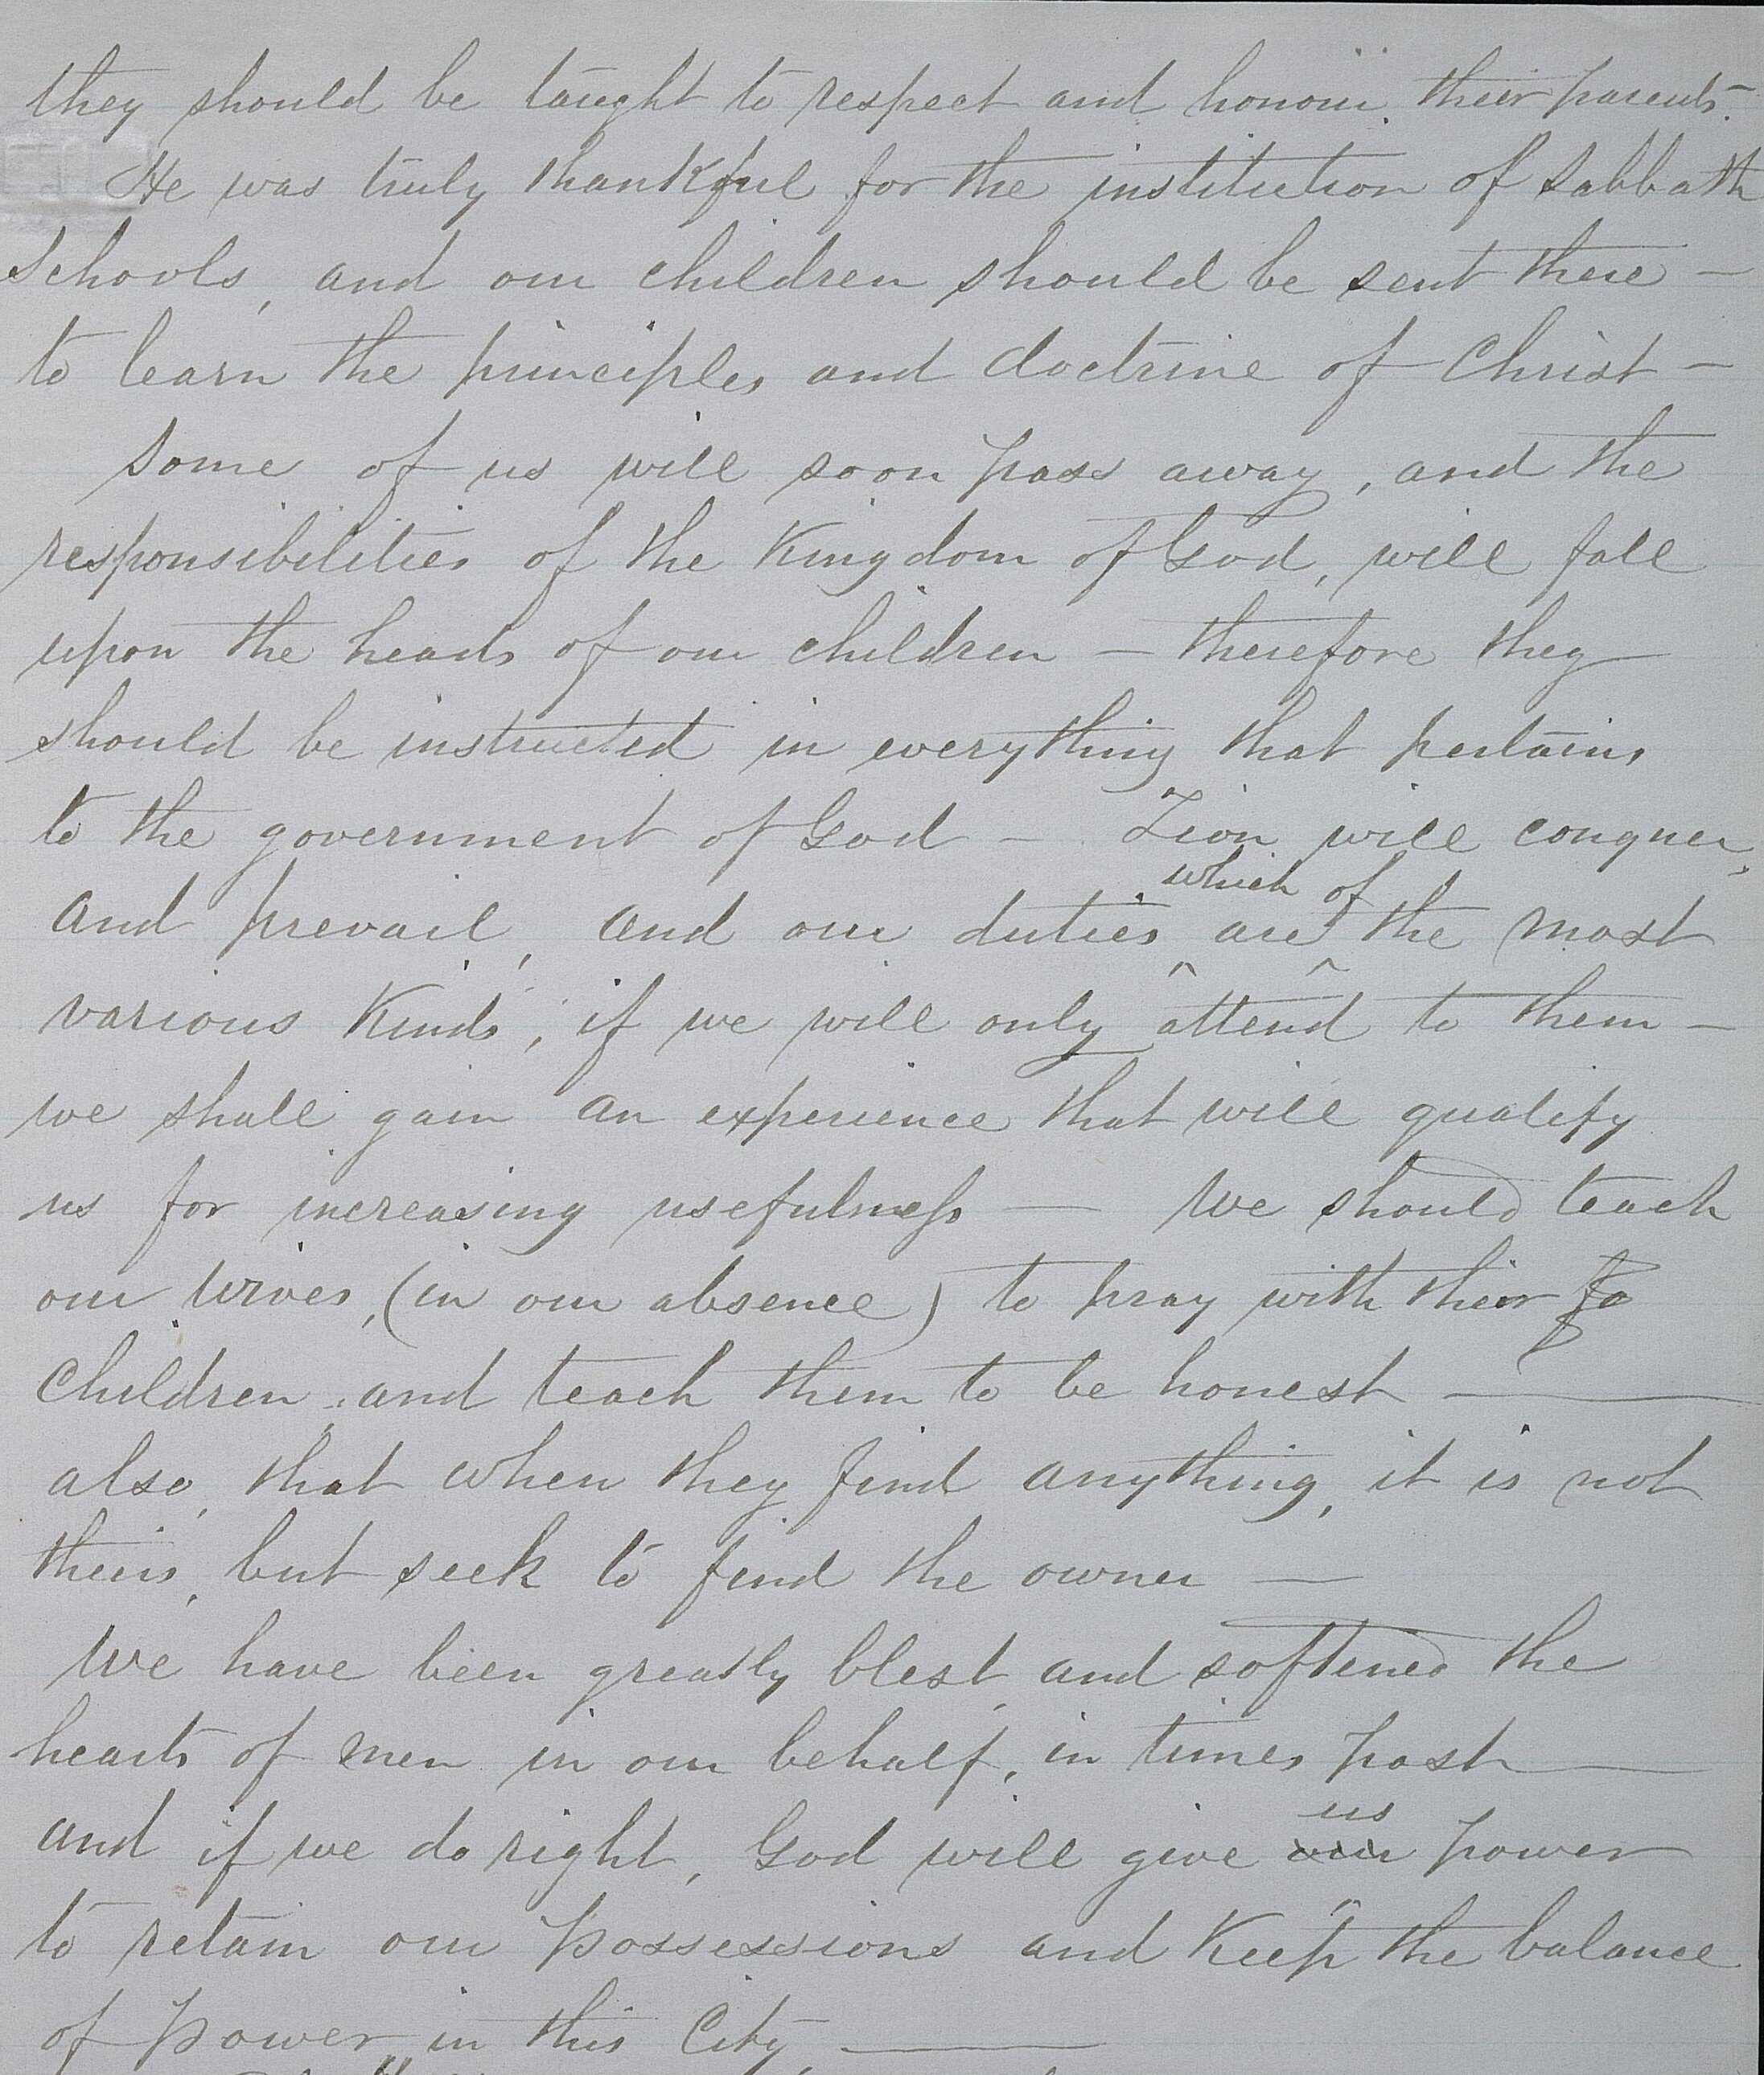 they should be taught to respect and honour their parents.
He was truly thankful for the institution of Sabbath
Schools, and our children should be sent there —
to learn the principles and doctrine of Christ —
Some of us will soon pass away, and the
responsibilities of the Kingdom of God, will fall
upon the heads of our children — therefore they
should be instructed in everything that pertains
to the government of God — Zion will conquer,
which of
and prevail, and our duties ^ are ^ the most
various Kinds, if we will only attend to them —
we shall gain an experience that will qualify
us for increasing usefulness — We should teach
our wives, (in our absence) to pray with their fa
children, and teach them to be honest —
also, that when they find anything, it is not
theirs, but seek to find the owner —
We have been greatly blest, and softened the
hearts of men in our behalf, in times past —
us
and if we do right, God will give our power
to retain our possessions and Keep the balance
of power, in this City, —